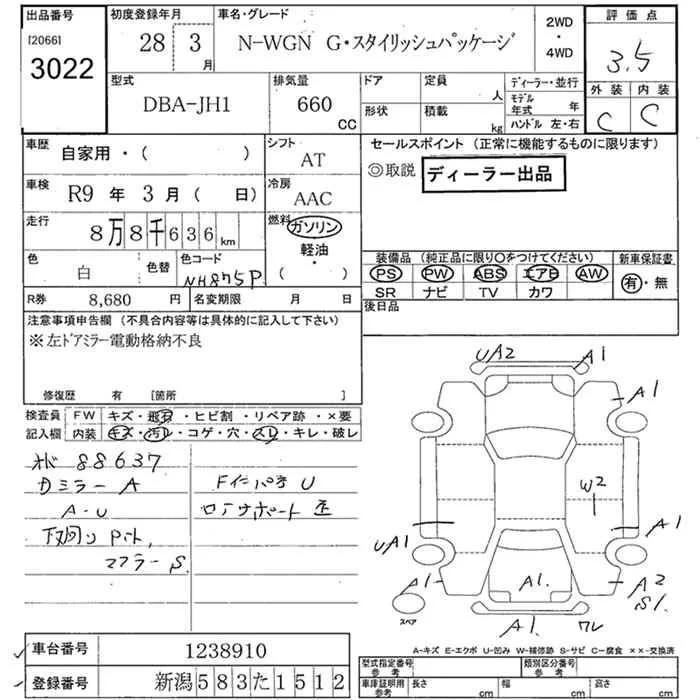 出品番号
[2066]
3022
初度登録年月
28 3
月
車名・グレード
N-WGN G・スタイリッシュパッケージ
2WD
・
4WD
評価点
3.5
外装 内装
C C
型式
DBA-JH1
排気量
660
CC
ドア
定員
人
形状
積載
kg
ディーラー・並行
モデル
年式 年
ハンドル 左・右
車歴
自家用・( )
シフト
AT
セールスポイント (正常に機能するものに限ります)
◎取説 ディーラー出品
車検
R9 年 3 月 ( 日)
冷房
AAC
走行
8万8千636km
燃料
ガソリン
軽油・
( )
色
白
色替
色コード
NH875P
装備品 (純正品に限り○をつけてください)
PS PW ABS エアB AW
SR ナビ TV カワ
新車保証書
有・無
R券 8,680 円
名変期限 月 日
後日品
注意事項申告欄 (不具合内容等は具体的に記入して下さい)
※左ドアミラー電動格納不良
修復歴 有 [箇所 ]
検査員
記入欄
FW キズ・飛石・ヒビ割・リペア跡・×要
内装 キズ・汚レ・コゲ・穴・スレ・キレ・破レ
オド 88637
ガミラー A
A-U
下廻り Pハト,
マフラー S.
Fインパネ U
ロアサポート 歪
UA2
A1
A1
W2
A1
UA1
A1
A1.
A2
S1.
A1.
ワレ
スペア
A-キズ E-エクボ U-凹み W-補修跡 S-サビ C-腐食 ××-交換済
車台番号 1238910
登録番号 新潟583た1512
型式指定番号
参考
類別区分番号
参考
車庫証明用
参考
長さ cm
幅 cm
高さ cm